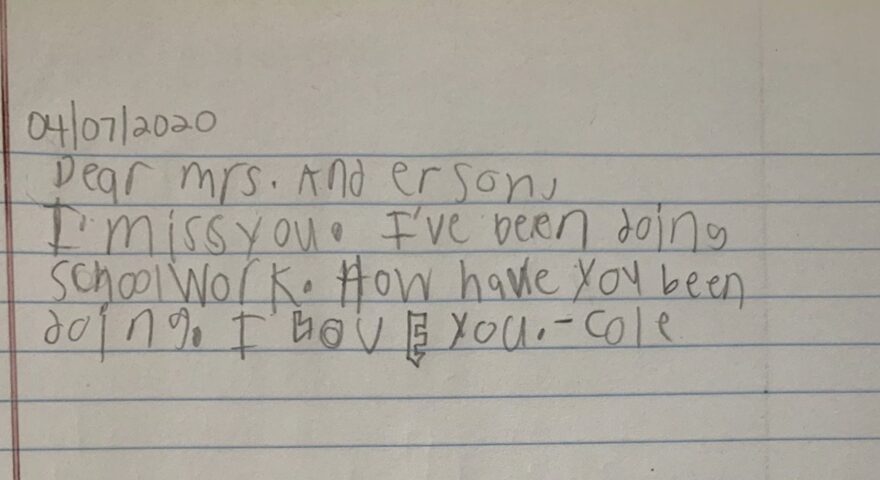 04/07/2020
Dear mrs. And erson,
I miss you. I've been doing
schoolwork. How have you been
doing. I LOVE you.-Cole